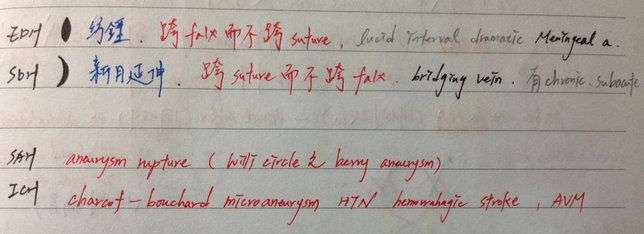 EDH 紡錘. 跨 falx 而不跨 suture, lucid interval dramatic Meningeal a.
SDH 新月延伸. 跨 suture 而不跨 falx. bridging vein. 有 chronic. subacute
SAH aneurysm rupture (willi circle 之 berry aneurysm)
ICH charcot-bouchard microaneurysm HTN hemorrahagic stroke, AVM